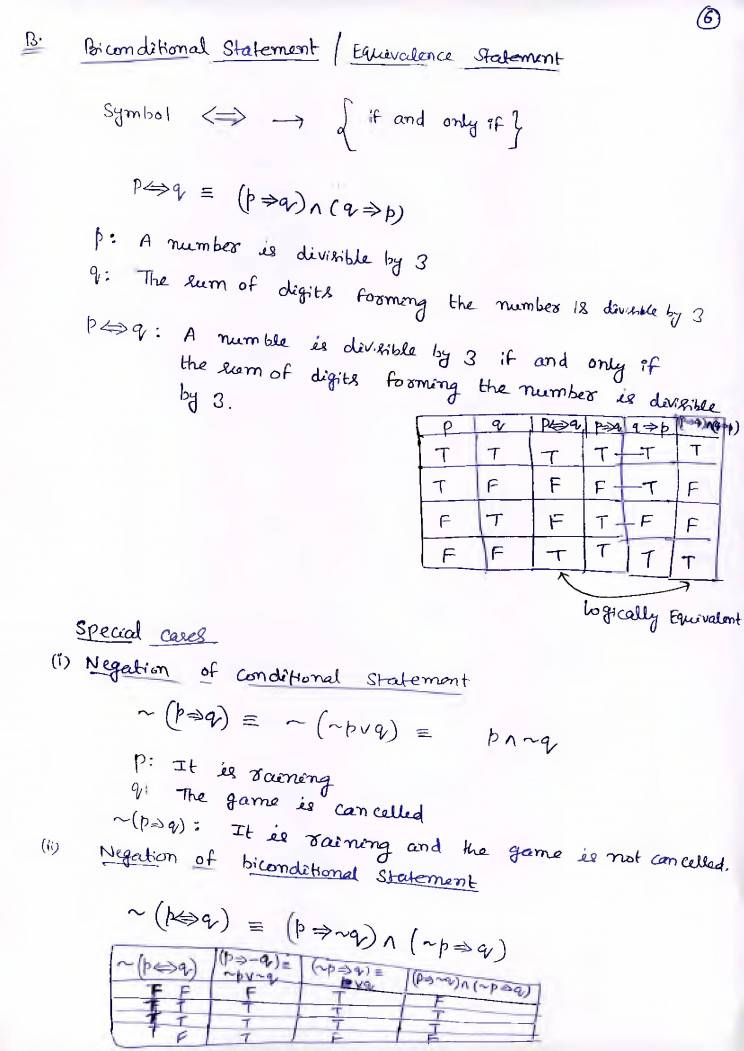 6
B. Biconditional Statement / Equivalence Statement
Symbol ⇔ → { if and only if }
p⇔q ≡ (p⇒q)∧(q⇒p)
p: A number is divisible by 3
q: The sum of digits forming the number is divisible by 3
p⇔q: A numble is divisible by 3 if and only if
the sum of digits forming the number is divisible
by 3.
p q p⇔q p⇒q q⇒p (p⇒q)∧(q⇒p)
T T T T T T
T F F F T F
F T F T F F
F F T T T T
Logically Equivalent
Special cases
(i) Negation of conditional Statement
~(p⇒q) ≡ ~(~p∨q) ≡ p∧~q
p: It is raining
q: The game is cancelled
~(p⇒q): It is raining and the game is not cancelled.
(ii) Negation of biconditional Statement
~(p⇔q) ≡ (p⇒~q)∧(~p⇒q)
~(p⇔q) (p⇒~q)≡ ~p∨~q (~p⇒q)≡ p∨q (p⇒~q)∧(~p⇒q)
F F T F
T T T T
T T T T
F T F F